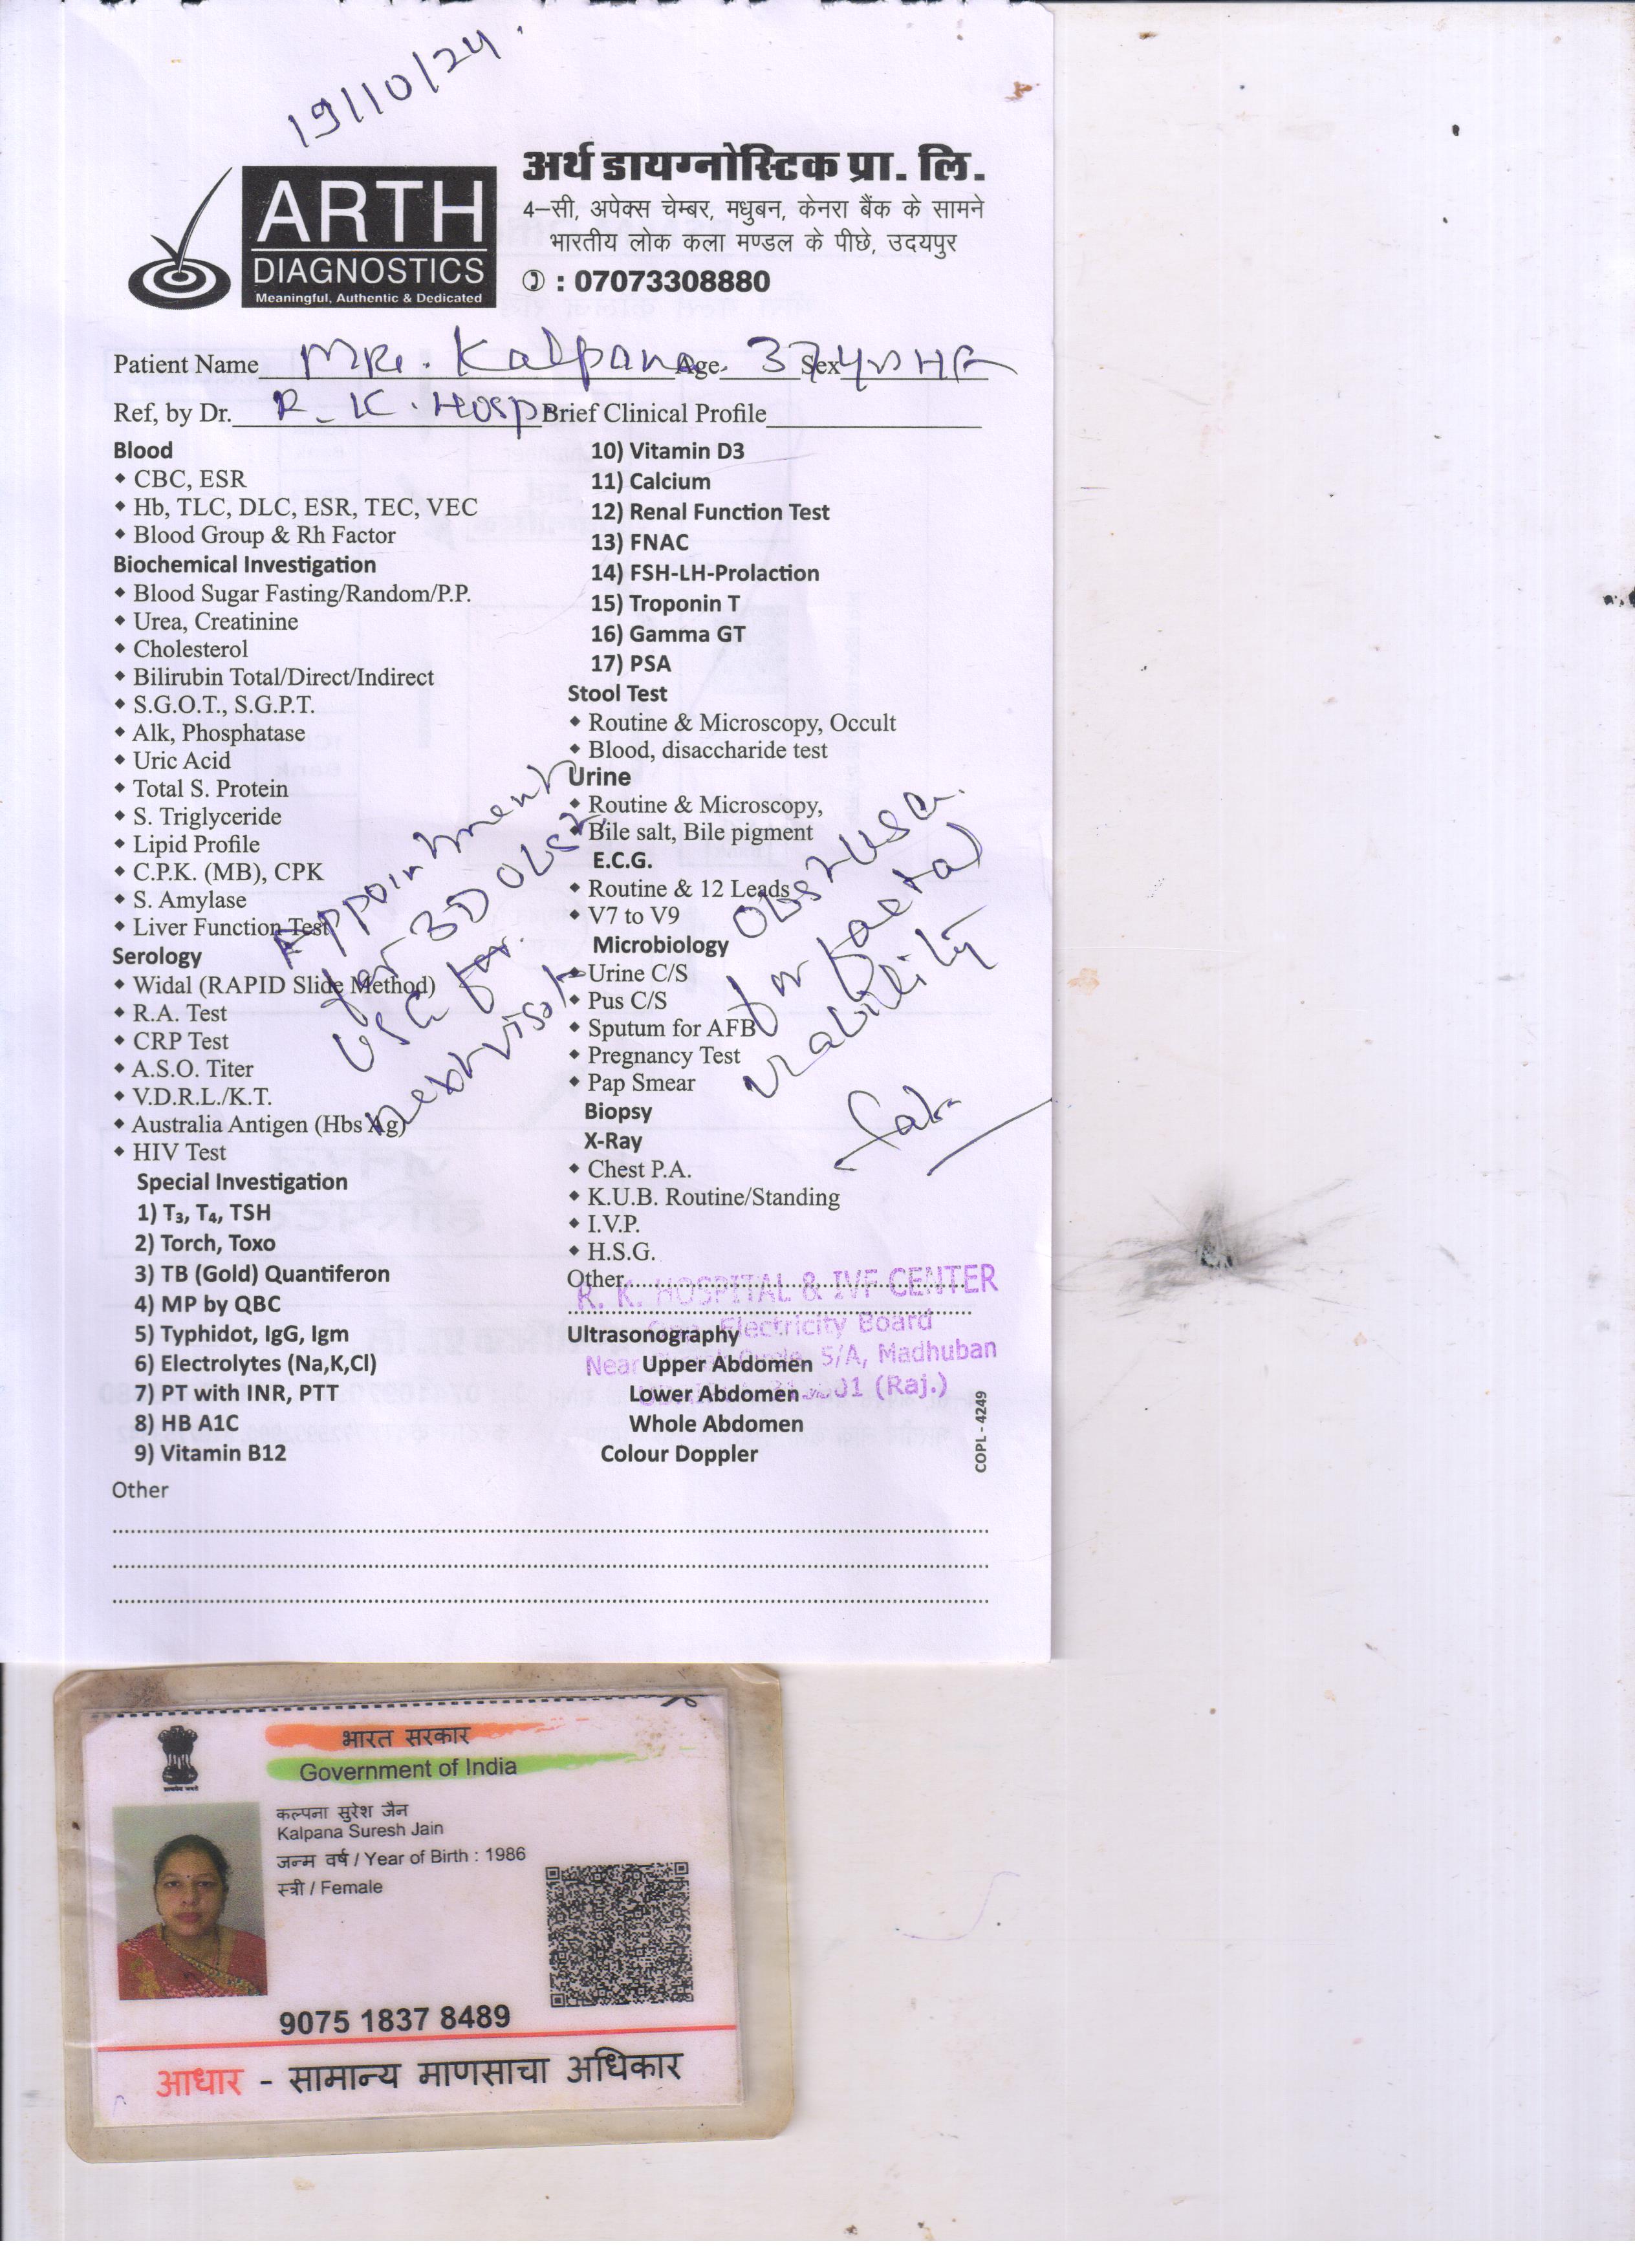 19/10/24
ARTH
DIAGNOSTICS
Meaningful, Authentic & Dedicated
अर्थ डायग्नोस्टिक प्रा. लि.
4–सी, अपेक्स चेम्बर, मधुबन, केनरा बैंक के सामने
भारतीय लोक कला मण्डल के पीछे, उदयपुर
: 07073308880
Patient Name Kalpana Age. 37 Sex
Ref, by Dr. R. K. Hosp Brief Clinical Profile
Blood
CBC, ESR
Hb, TLC, DLC, ESR, TEC, VEC
Blood Group & Rh Factor
Biochemical Investigation
Blood Sugar Fasting/Random/P.P.
Urea, Creatinine
Cholesterol
Bilirubin Total/Direct/Indirect
S.G.O.T., S.G.P.T.
Alk, Phosphatase
Uric Acid
Total S. Protein
S. Triglyceride
Lipid Profile
C.P.K. (MB), CPK
S. Amylase
Liver Function Test
Serology
Widal (RAPID Slide Method)
R.A. Test
CRP Test
A.S.O. Titer
V.D.R.L./K.T.
Australia Antigen (Hbs Ag)
HIV Test
Special Investigation
1) T₃, T₄, TSH
2) Torch, Toxo
3) TB (Gold) Quantiferon
4) MP by QBC
5) Typhidot, IgG, Igm
6) Electrolytes (Na,K,Cl)
7) PT with INR, PTT
8) HB A1C
9) Vitamin B12
Other
Appointment
for 3D Obst
USG for
next visit
10) Vitamin D3
11) Calcium
12) Renal Function Test
13) FNAC
14) FSH-LH-Prolaction
15) Troponin T
16) Gamma GT
17) PSA
Stool Test
Routine & Microscopy, Occult
Blood, disaccharide test
Urine
Routine & Microscopy,
Bile salt, Bile pigment
E.C.G.
Routine & 12 Leads
V7 to V9
Microbiology
Urine C/S
Pus C/S
Sputum for AFB
Pregnancy Test
Pap Smear
Biopsy
X-Ray
Chest P.A.
K.U.B. Routine/Standing
I.V.P.
H.S.G.
Other
Ultrasonography
Upper Abdomen
Lower Abdomen
Whole Abdomen
Colour Doppler
Obst USG
for faetal
viability
R. K. HOSPITAL & IVF CENTER
Opp. Electricity Board
Near 5/A, Madhuban
(Raj.)
COPL - 4249
भारत सरकार
Government of India
कल्पना सुरेश जैन
Kalpana Suresh Jain
जन्म वर्ष / Year of Birth : 1986
स्त्री / Female
9075 1837 8489
आधार - सामान्य माणसाचा अधिकार